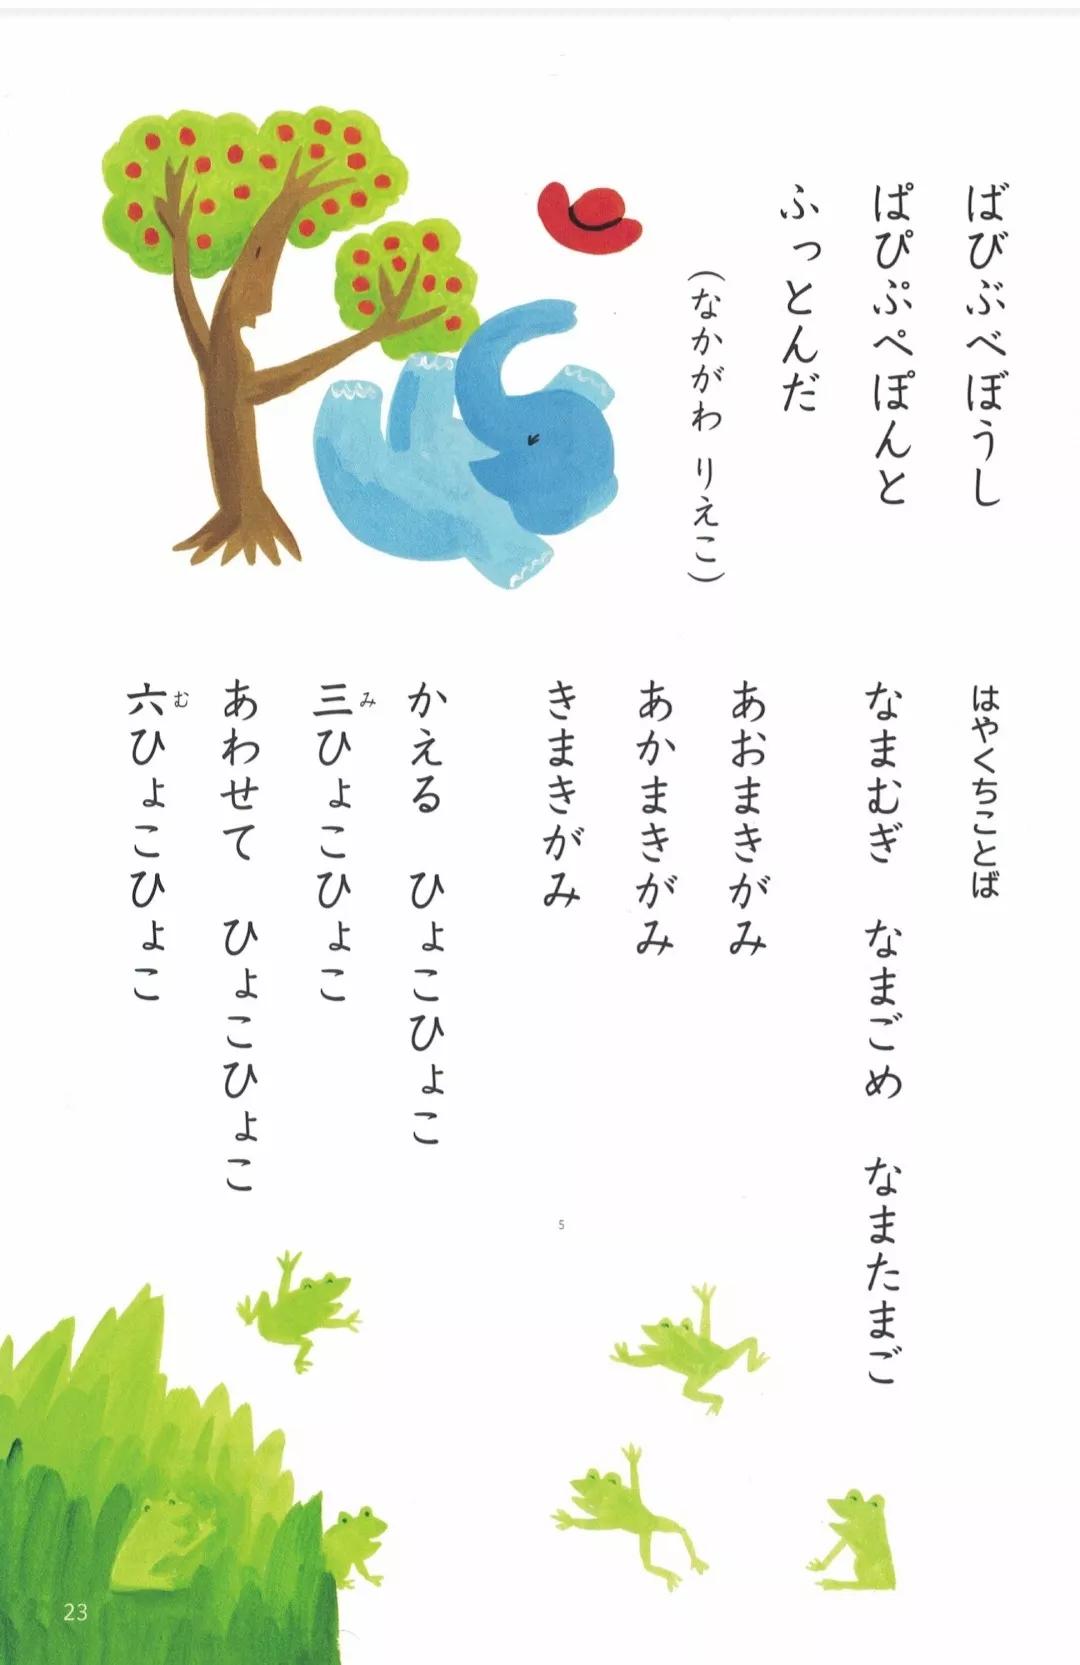 ばびぶべぼうし
ぱぴぷぺぽんと
ふっとんだ
(なかがわ りえこ)
はやくちことば
なまむぎ なまごめ なまたまご
あおまきがみ
あかまきがみ
きまきがみ
かえる ひょこひょこ
三ひょこひょこ
み
あわせて ひょこひょこ
六ひょこひょこ
む
5
23